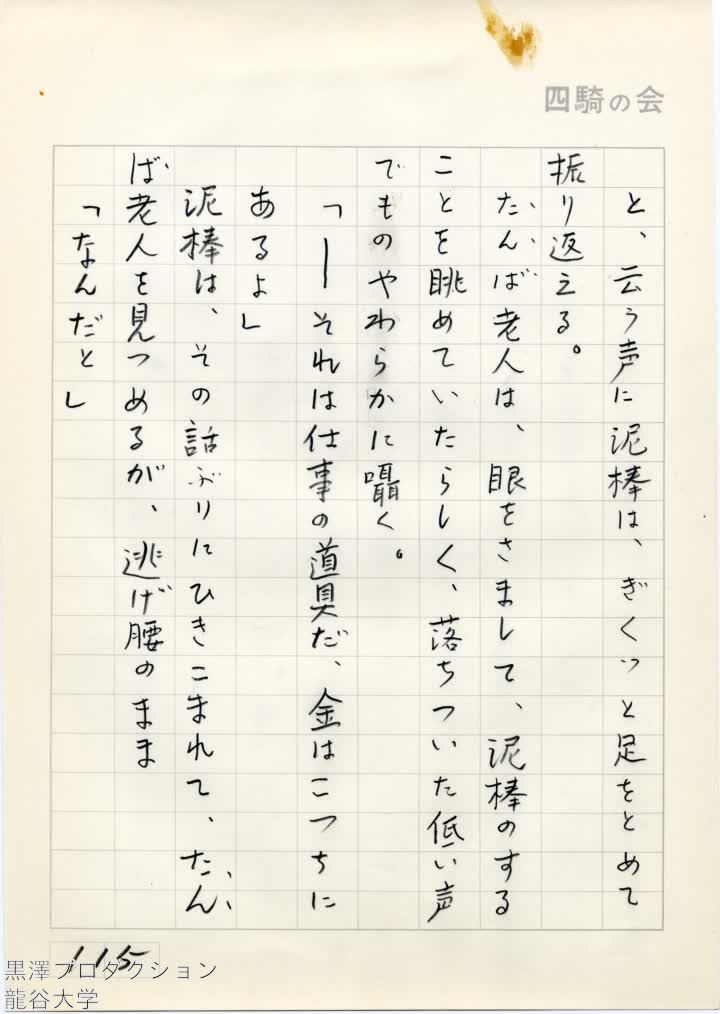 四騎の会
と、云う声に泥棒は、ぎくっと足をとめて
振り返える。
たんば老人は、眼をさまして、泥棒のする
ことを眺めていたらしく、落ちついた低い声
でものやわらかに囁く。
「――それは仕事の道具だ、金はこつちに
あるよ」
泥棒は、その話ぶりにひきこまれて、たん
ば老人を見つめるが、逃げ腰のまま
「なんだと」
115
黒澤プロダクション
龍谷大学